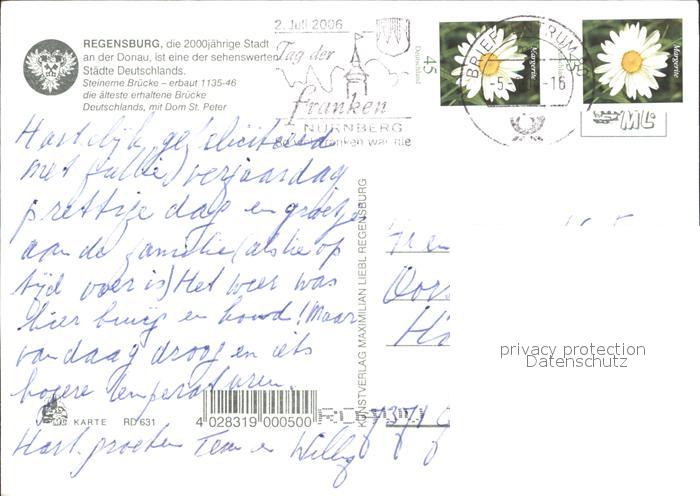 REGENSBURG, die 2000jährige Stadt
an der Donau, ist eine der sehenswerten
Städte Deutschlands.
Steinerne Brücke – erbaut 1135-46
die älteste erhaltene Brücke
Deutschlands, mit Dom St. Peter
2. Juli 2006
Tag der
franken
NÜRNBERG
Franken war nie
Deutschland
45
Margerite
BRIEF
-5
-16
Margerite
Hartelijk gefeliciteerd
met jullie verjaardag
prettige dag en groetjes
aan de familie (als die op
tijd over is) Het weer was
hier buiig en koud! Maar
vandaag droog en iets
hogere temperaturen.
KUNSTVERLAG MAXIMILIAN LIEBL REGENSBURG
privacy protection
Datenschutz
KARTE RD 631
4 028319 000500
Hart. groeten Teun en Willy